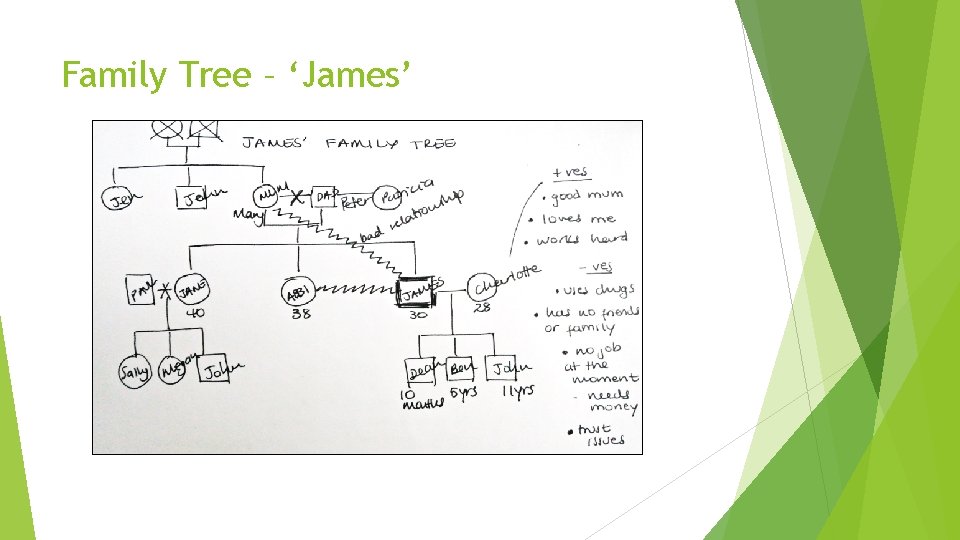 Family Tree – ‘James’
JAMES' FAMILY TREE
Jen
John
MUM
Mary
DAD
Peter
Patricia
bad relationship
JANE
40
ABBI
38
JAMES
30
Charlotte
28
Sally
Megan
John
Dean
10
months
Ben
5yrs
John
11yrs
+ ves
• good mum
• loves me
• works hard
- ves
• uses drugs
• has no friends
or family
• no job
at the
moment
- needs
money
• trust
issues